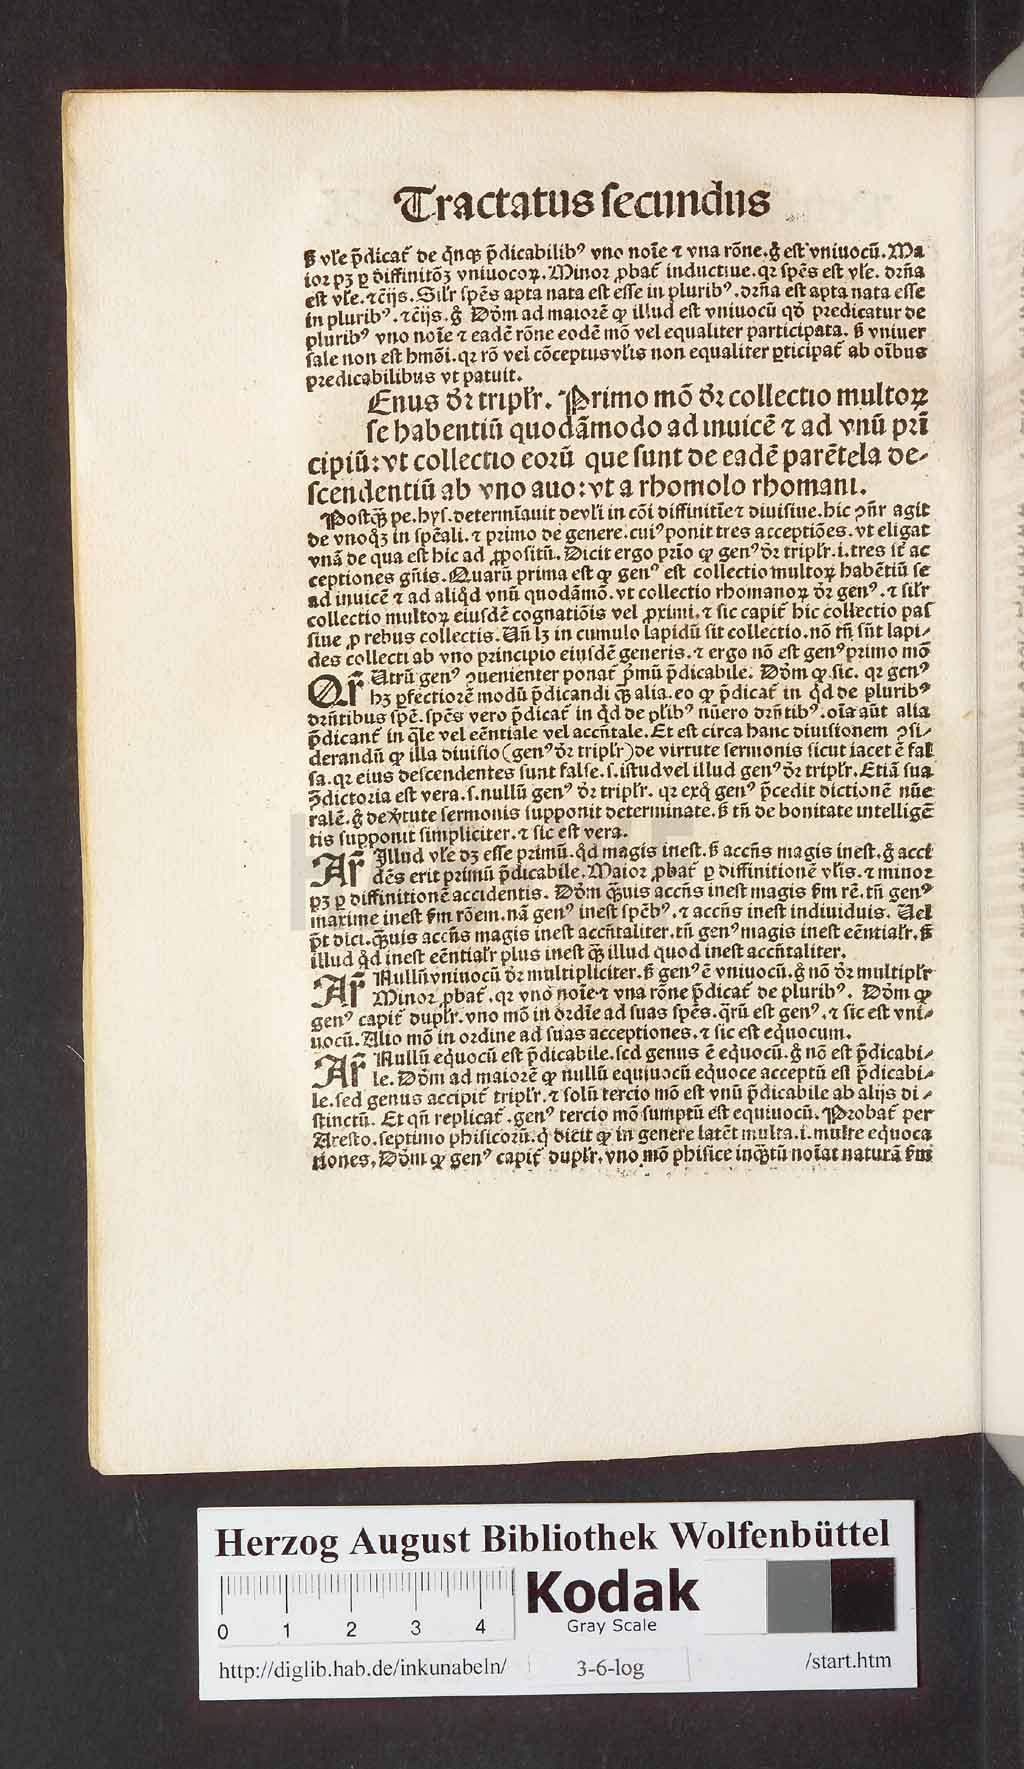 Tractatus secundus
ß vľe p̄dicat̄ de q̇nqꝫ p̄dicabilibꝰ vno noīe ⁊ vna rōne.g̊ est vniuocū.Ma
ior pꝫ ꝑ diffinitōꝫ vniuocoꝝ.Minor ꝓbat̄ inductiue.qꝛ spēs est vľe. drn̄a
est vľe.⁊c̄ijs.Silr̄ spēs apta nata est esse in pluribꝰ.drn̄a est apta nata esse
in pluribꝰ.⁊c̄ijs.g̊ Dd̄m ad maiorē ꝙ illud est vniuocū qd̄ predicatur de
pluribꝰ vno noīe ⁊ eadē rōne eodē mō vel equaliter participata. ß vniuer
sale non est hmōi.qꝛ rō vel cōceptus vľis non equaliter ꝑticipat̄ ab oībus
predicabilibus vt patuit.
Enus dr̄ triplr̄. Primo mō dr̄ collectio multoꝝ
se habentiū quodāmodo ad inuicē ⁊ ad vnū pri
cipiū:vt collectio eorū que sunt de eadē parētela de⸗
scendentiū ab vno auo:vt a rhomolo rhomani.
Postꝙ̄ pe.hys.determīauit de vľi in cōi diffinitīe ⁊ diuisiue.hic ꝯn̄r agit
de vnoqꝫ in spēali.⁊ primo de genere.cuiꝰ ponit tres acceptiōes.vt eligat
vnā de qua est hic ad ꝓpositū.Dicit ergo prīo ꝙ genꝰ dr̄ triplr̄.i.tres st̄ ac
ceptiones gn̄is.Quarū prima est ꝙ genꝰ est collectio multoꝝ habētiū se
ad inuicē ⁊ ad aliqd̄ vnū quodāmō.vt collectio rhomanoꝝ dr̄ genꝰ.⁊ silr̄
collectio multoꝝ eiusdē cognatiōis vel ꝓximi.⁊ sic capit̄ hic collectio pas
siue ꝓ rebus collectis.Un̄ lꝫ in cumulo lapidū sit collectio.nō tn̄ sūt lapi⸗
des collecti ab vno principio eiusdē generis.⁊ ergo nō est genꝰ primo mō
Qr̄ Utrū genꝰ ꝯuenienter ponat̄ pͥmū p̄dicabile. Dd̄m ꝙ sic. qꝛ genꝰ
hꝫ ꝑfectiorē modū p̄dicandi ꝙ̄ alia.eo ꝙ p̄dicat̄ in qͥd de pluribꝰ
drn̄tibus spē.spēs vero p̄dicat̄ in qͥd de pľibꝰ nūero drn̄tibꝰ.oīa aūt alia
p̄dicant̄ in q̄le vel eēntiale vel accn̄tale.Et est circa hanc diuisionem ꝯsi⸗
derandū ꝙ illa diuisio (genꝰ dr̄ triplr̄) de virtute sermonis sicut iacet ē fal
sa.qꝛ eius descendentes sunt false.s.istud vel illud genꝰ dr̄ triplr̄.Etiā sua
ꝯdictoria est vera.s.nullū genꝰ dr̄ triplr̄. qꝛ ex qͦ genꝰ p̄cedit dictionē nūe
ralē.g̊ de v̓tute sermonis supponit determinate.ß tn̄ de bonitate intelligē
tis supponit simpliciter.⁊ sic est vera.
Ar̄ Illud vľe dꝫ esse primū.qd̄ magis inest.ß accn̄s magis inest.g̊ acci
dēs erit primū p̄dicabile.Maior ꝓbat̄ ꝑ diffinitionē vľis.⁊ minor
pꝫ ꝑ diffinitionē accidentis. Dd̄m ꝙ̄uis accn̄s inest magis ẜm rē.tn̄ genꝰ
maxime inest ẜm rōem.nā genꝰ inest spēbꝰ.⁊ accn̄s inest indiuiduis. Uel
pōt dici.ꝙ̄uis accn̄s magis inest accn̄taliter.tn̄ genꝰ magis inest eēntialr̄.ß
illud qd̄ inest eēntialr̄ plus inest ꝙ̄ illud quod inest accn̄taliter.
Ar̄ Nullū vniuocū dr̄ multipliciter.ß genꝰ ē vniuocū.g̊ nō dr̄ multiplr̄
Minor ꝓbat̄.qꝛ vno noīe ⁊ vna rōne p̄dicat̄ de pluribꝰ. Dd̄m ꝙ
genꝰ capit̄ duplr̄.vno mō in ordīe ad suas spēs.q̄rū est genꝰ.⁊ sic est vni⸗
uocū.Alio mō in ordine ad suas acceptiones.⁊ sic est eq̇uocum.
Ar̄ Nullū eq̇uocū est p̄dicabile.sed genus ē eq̇uocū.g̊ nō est p̄dicabi⸗
le.Dd̄m ad maiorē ꝙ nullū equiuocū equoce acceptū est p̄dicabi⸗
le.sed genus accipit̄ triplr̄.⁊ solū tercio mō est vnū p̄dicabile ab alijs di⸗
stinctū. Et qn̄ replicat̄.genꝰ tercio mō sumptū est equiuocū.Probat̄ per
Aresto.septimo phisicorū.q̇ dicit ꝙ in genere latēt multa.i.multe eq̇uoca
tiones.Dd̄m ꝙ genꝰ capit̄ duplr̄.vno mō phisice inꝙ̄tū noīat naturā ẜm
Herzog August Bibliothek Wolfenbüttel
0 1 2 3 4
Kodak
Gray Scale
http://diglib.hab.de/inkunabeln/ 3-6-log /start.htm